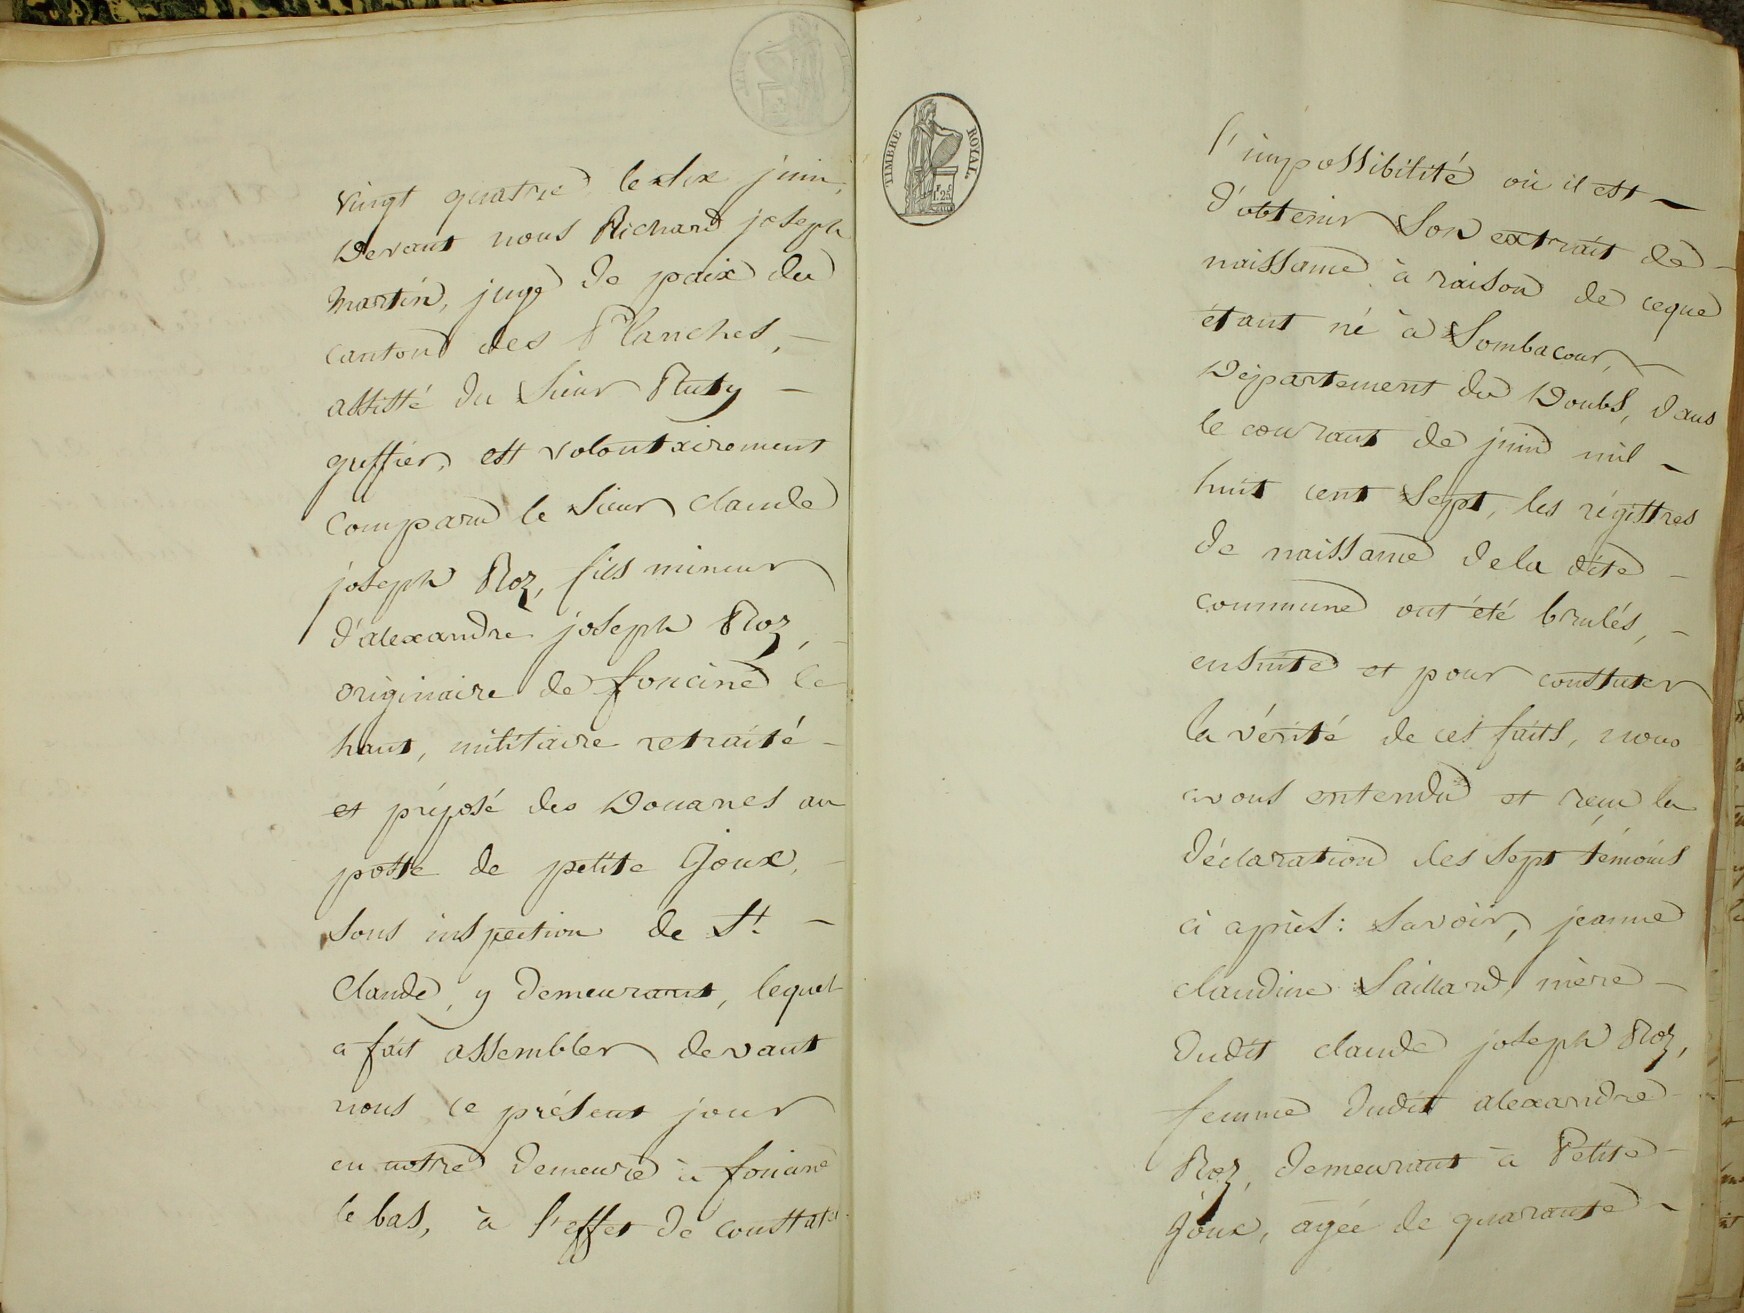 vingt quatre le six juin,
Devant nous Richard joseph
Martin, juge de paix du
canton des Planches, —
assisté du Sieur Ruty —
greffier, est volontairement
Comparu le Sieur claude
joseph Roz, fils mineur
d'alexandre joseph Roz, —
originaire de foncine le
haut, militaire retraité —
et préposé des Douanes au
poste de petite Joux, —
Sous inspection de St. —
Claude, y demeurant, lequel
a fait assembler devant
nous ce présent jour
en notre demeure à foncine
le bas, à l'effet de constater
TIMBRE ROYAL
l'impossibilité où il est —
d'obtenir Son extrait de —
naissance à raison de ceque
étant né à Sombacour, —
Département du Doubs, dans
le courant de juin mil —
huit cent Sept, les régistres
de naissance dela dite —
commune ont été brulés, —
ensuite et pour constater
la vérité de ces faits, nous
avons entendu et reçu la
déclaration des Sept témoins
ci après: Savoir, jeanne
claudine Saillard, mère —
dudit claude joseph Roz,
femme dudit alexandre —
Roz, demeurant à Petite —
Joux, agée de quarante —